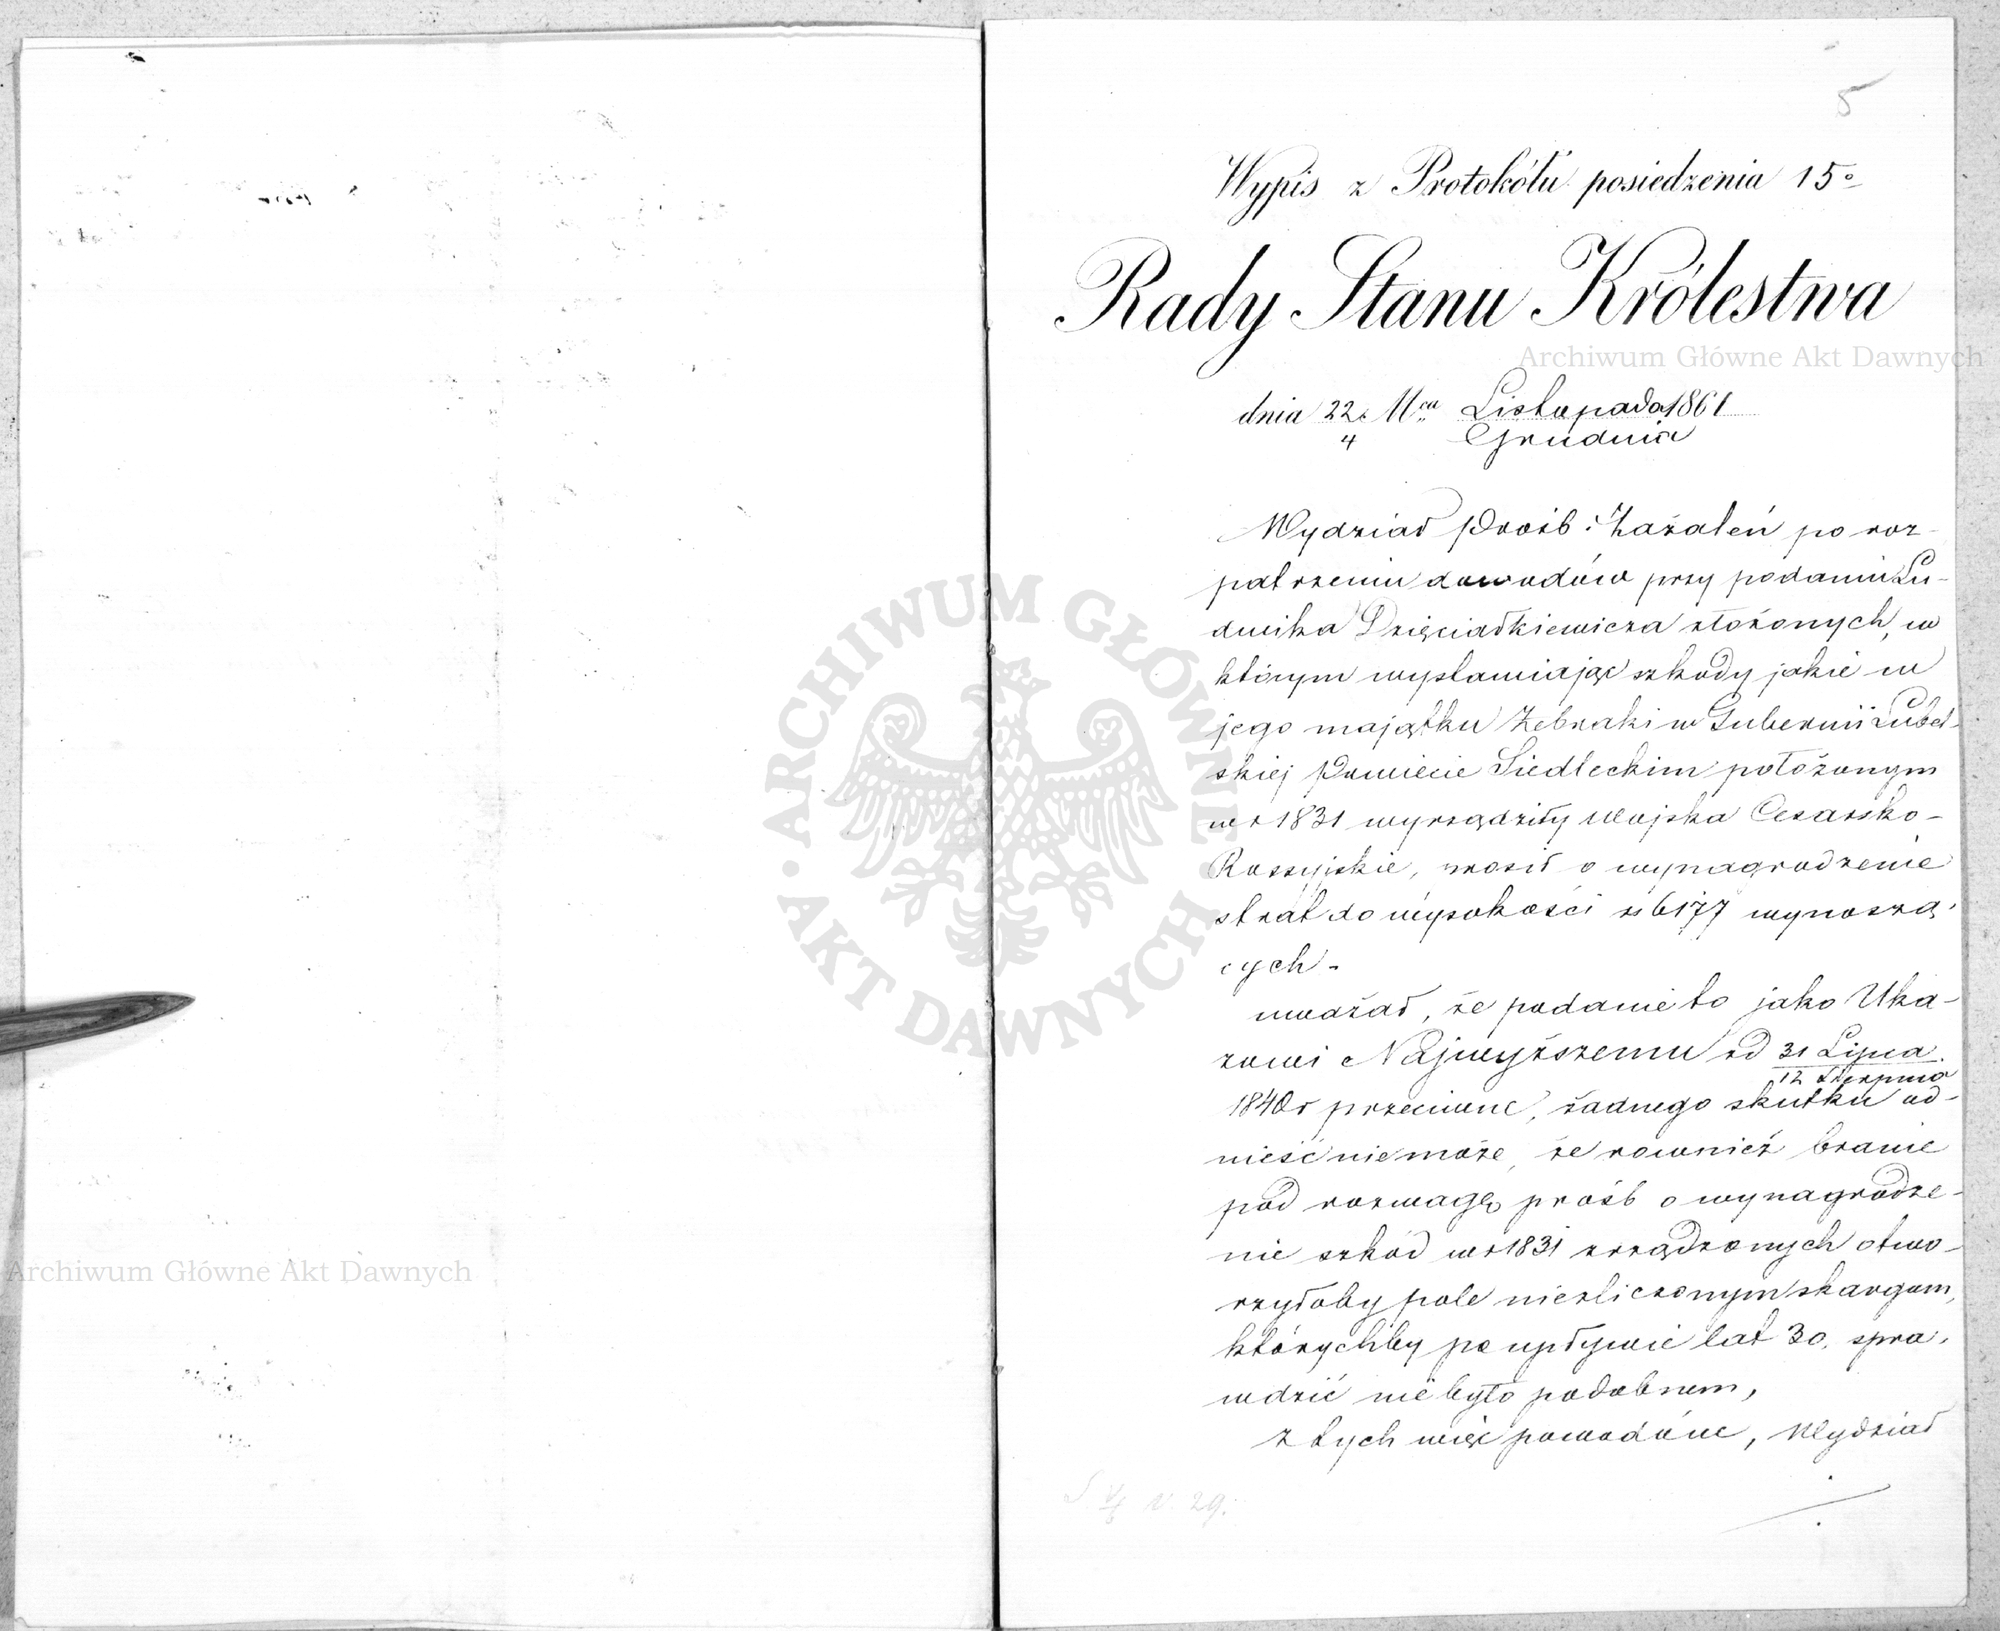 5
Wypis z Protokółu posiedzenia 15º
Rady Stanu Królestwa
Archiwum Główne Akt Dawnych
dnia 22 Mca Listopada 1861
4 Grudnia
Wydział Próśb i Zażaleń po roz-
patrzeniu dowodów przy podaniu Lu-
dwika Dzięciałkiewicza złożonych, w
którym wystawiając szkody jakie w
jego majątku Żebraki w Gubernii Lubel-
skiej Powiecie Siedleckim położonym
w r 1831 wyrządziły Wojska Cesarsko-
Rossyjskie, prosił o wynagrodzenie
strat do wysokości rs 6177 wynoszą-
cych.
uważał, że podanie to jako Uka-
zowi Najwyższemu od 31 Lipca
12 Sierpnia
1840 r przeciwne, żadnego skutku od-
nieść nie może, że rownież branie
pod rozwagę próśb o wynagrodze-
nie szkód w r 1831 zrządzonych otwo-
rzyłoby pole niezliczonym skargom,
którychby po upływie lat 30, spra-
wdzić nie było podobnem,
z tych więc powodów, Wydział
29.
ARCHIWUM GŁÓWNE
AKT DAWNYCH
Archiwum Główne Akt Dawnych